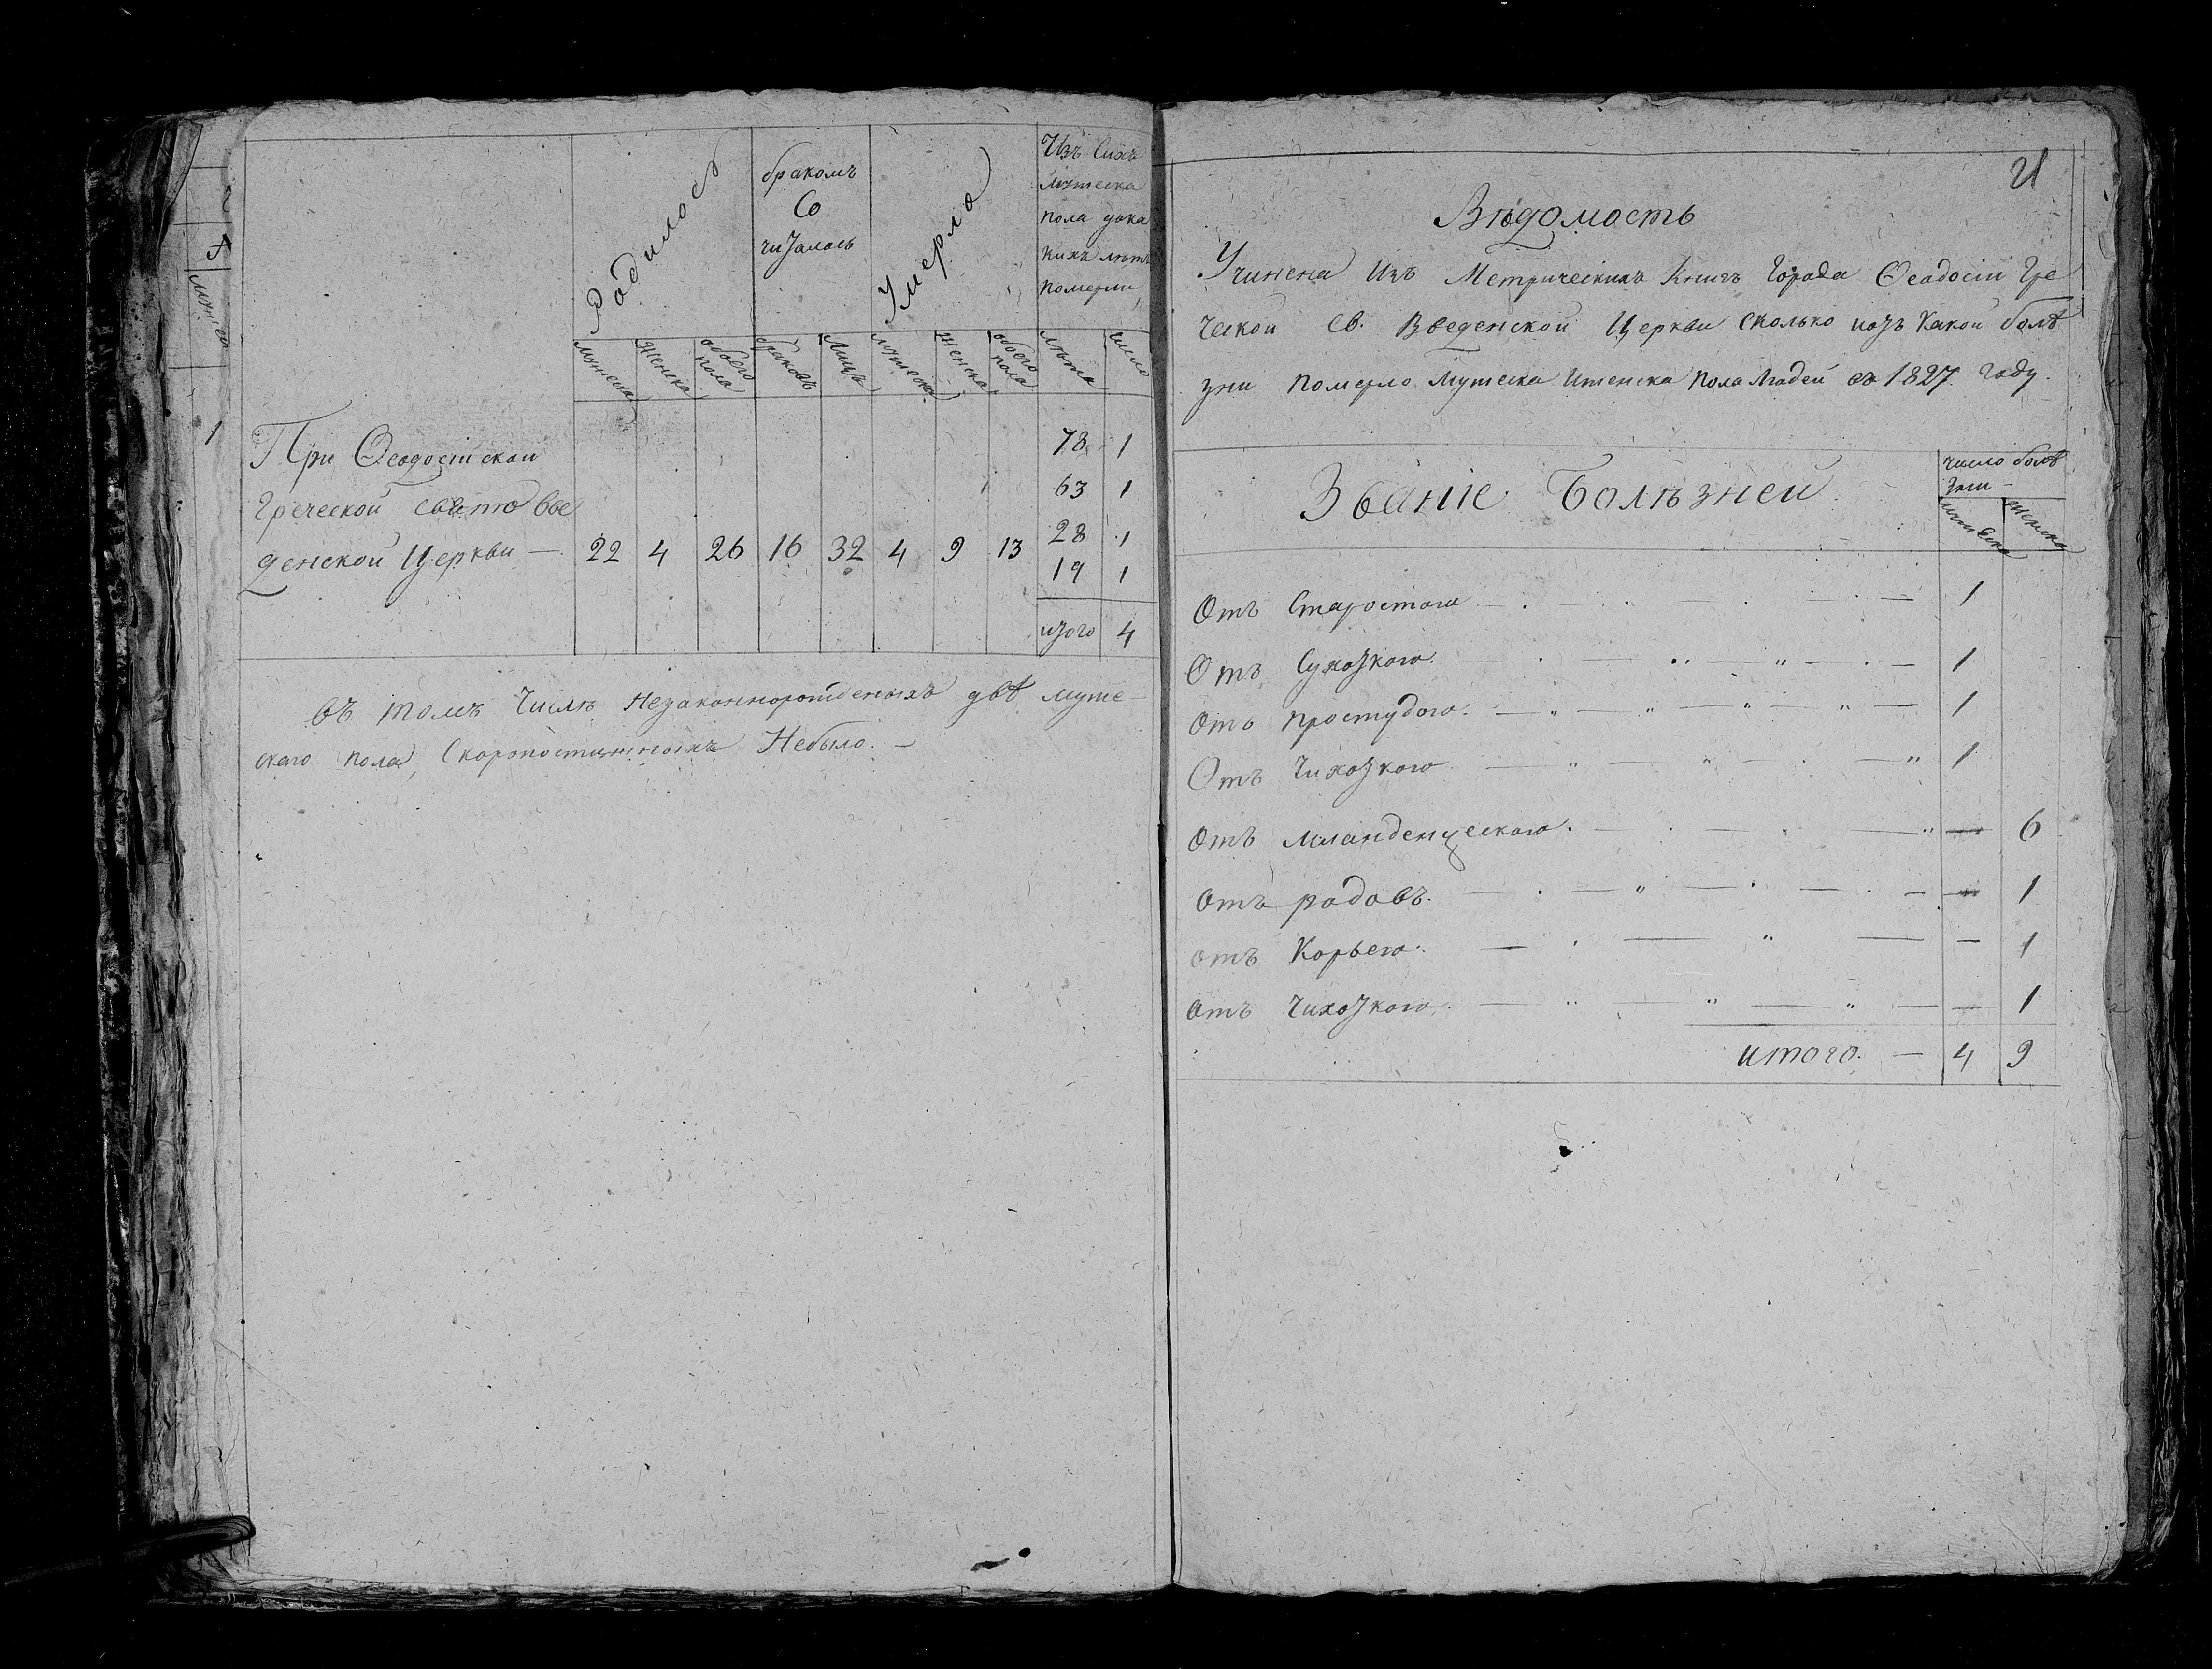 Родилось
бракомъ
Со
читалось
Умерло
Изъ Сихъ
мужеска
пола дока
кихъ лѣтъ
померли
мужеска женска обоего пола браковъ Лицъ мужеска женска обоего пола лѣта число
1 При Ѳеодосійской
Греческой Свято Вве
денской Церкви — 22 4 26 16 32 4 9 13
78 1
63 1
28 1
19 1
итого 4
въ томъ числѣ незаконнорожденыхъ двѣ муже
скаго пола, Скоропостижныхъ Небыло. —
21
Вѣдомость
Учинена Изъ Метрическихъ Книгъ Города Ѳеодосіи Гре
ческой Св. Введенской Церкви сколько изъ Какой болѣ
зни померло мужеска Иженска пола людей въ 1827 году.
Званіе Болѣзней
число болѣ
зни
мужеска женска
Отъ Старостого 1
Отъ Сухоткого. 1
Отъ простудого. 1
Отъ Чихоткого 1
Отъ младенческого. — 6
Отъ родовъ. — 1
отъ Корьего. — 1
отъ Чихоткого. — 1
итого. — 4 9